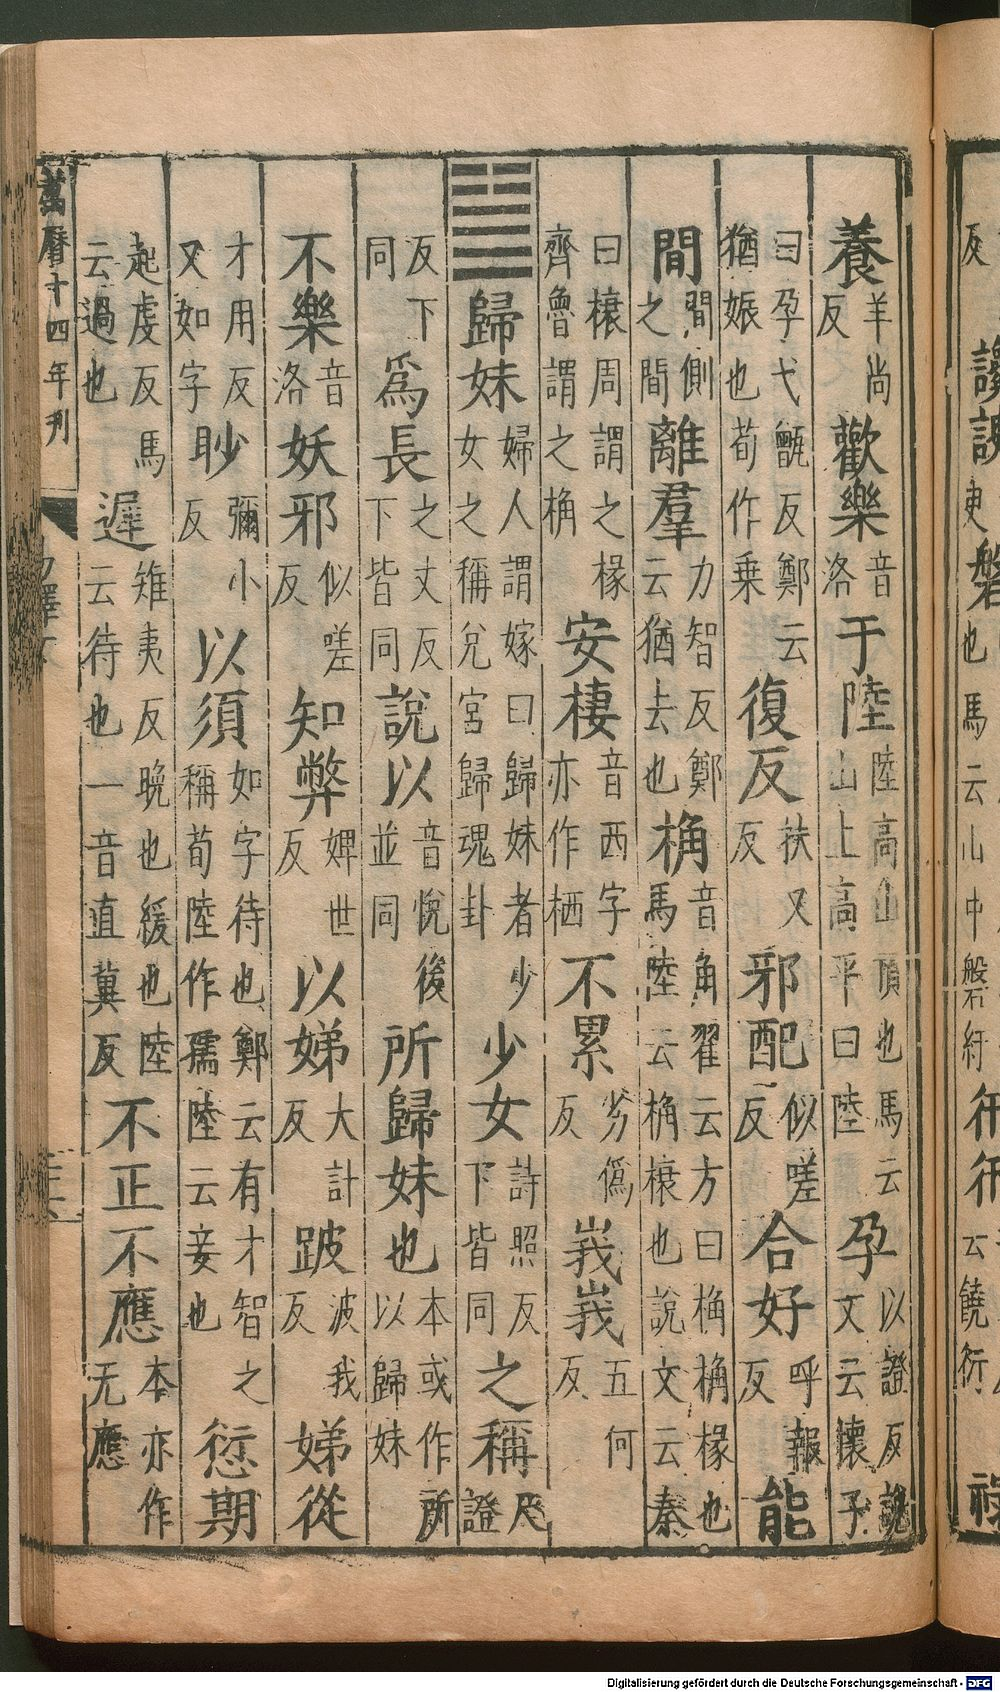 磐 也馬云山中磐紆 衎衎 云饒衍 祿
養 羊尚反 歡樂 音洛 于陸 陸高山頂也馬云山上高平曰陸 孕 以證反說文云懷子
曰孕弋甑反鄭云猶娠也荀作乘 復反 扶又反 邪配 似嗟反 合好 呼報反 能
間 間側之間 離羣 力智反鄭云猶去也 桷 音角翟云方曰桷桷椽也馬陸云桷榱也說文云秦
曰榱周謂之椽齊魯謂之桷 安棲 音西字亦作栖 不累 劣僞反 峩峩 五何反
䷵ 歸妹 婦人謂嫁曰歸妹者少女之稱兌宮歸魂卦 少女 詩照反下皆同 之稱 尺證
反下同 爲長 之丈反下皆同 說以 音悅後並同 所歸妹也 本或作所以歸妹
不樂 音洛 妖邪 似嗟反 知弊 婢世反 以娣 大計反 跛 波我反 娣從
才用反又如字 眇 彌小反 以須 如字待也鄭云有才智之稱荀陸作孺陸云妾也 愆期
起虔反馬云過也 遲 雉夷反晚也緩也陸云待也一音直冀反 不正不應 本亦作无應
萬曆十四年刊
Digitalisierung gefördert durch die Deutsche Forschungsgemeinschaft - DFG